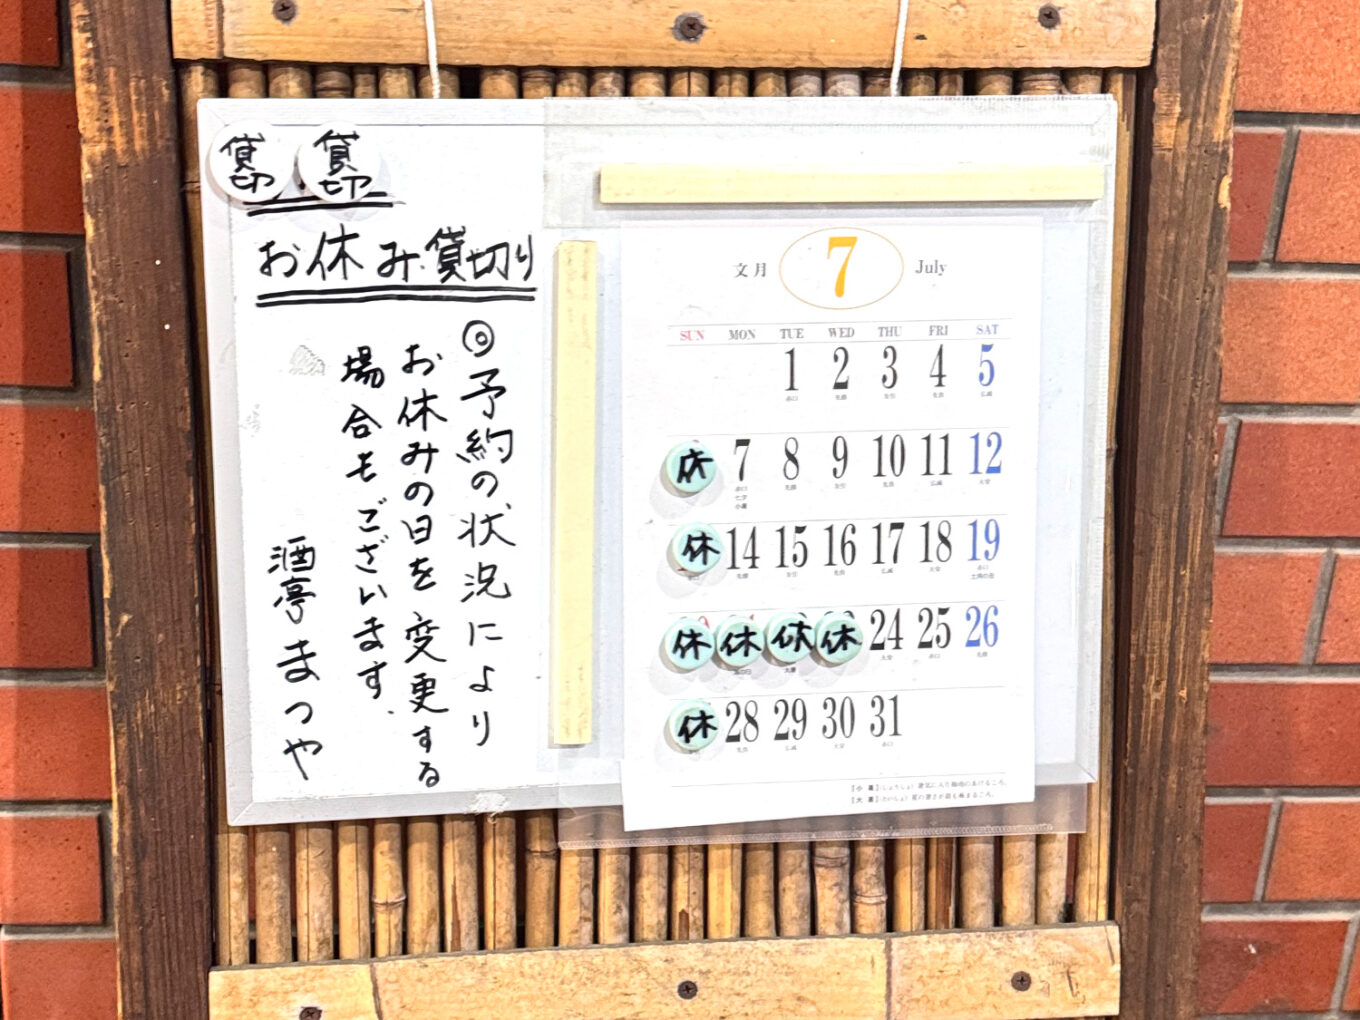 貸切 貸切
お休み・貸切り
◎予約の状況により
お休みの日を変更する
場合もございます.
酒亭 まつや
文月 7 July
SUN MON TUE WED THU FRI SAT
1 2 3 4 5
休 7 8 9 10 11 12
休 14 15 16 17 18 19
休 休 休 休 24 25 26
休 28 29 30 31